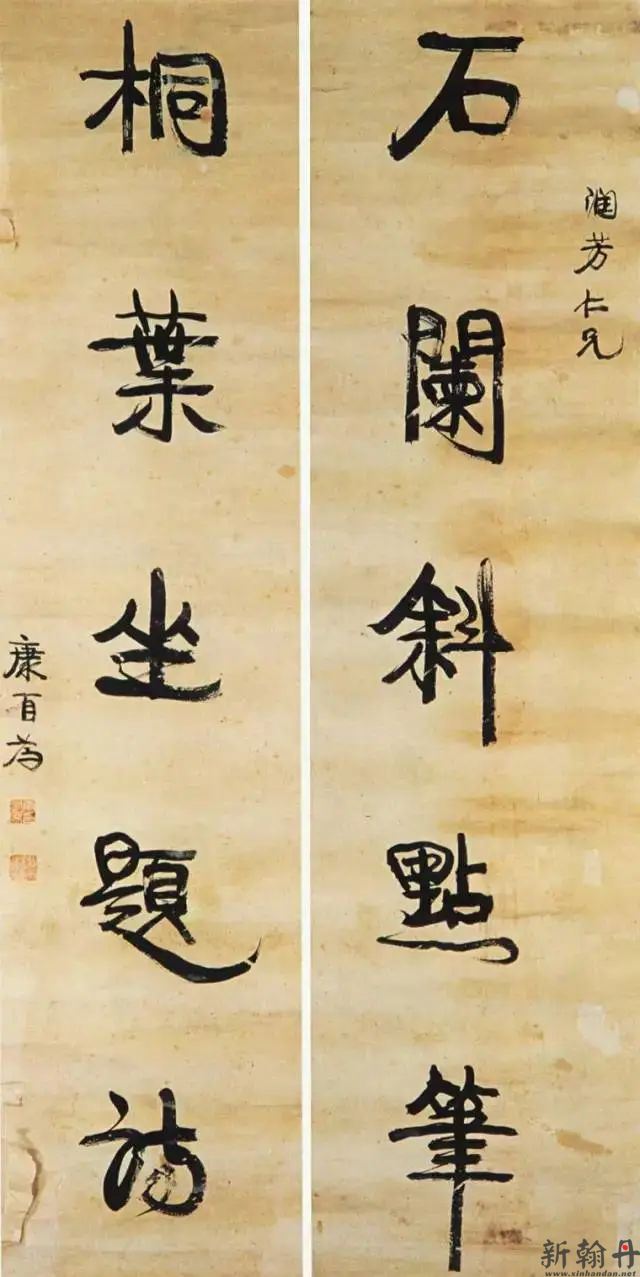 潤芳仁兄
石闌斜點筆
桐葉坐題詩
康有為
新翰丹
www.xinhandan.net